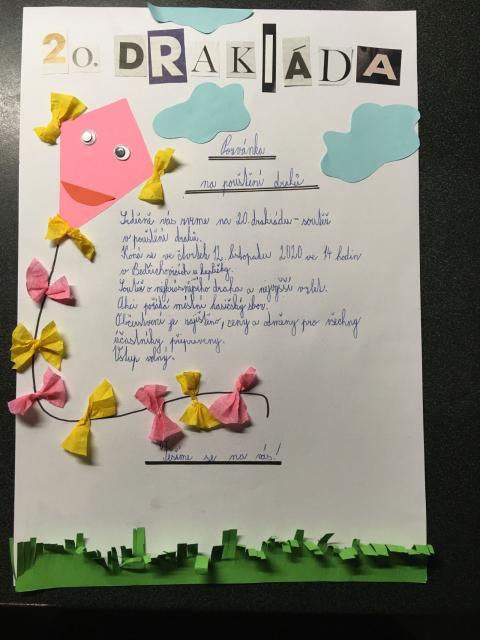 20. DRAKIÁDA
Pozvánka
na pouštění draků
Srdečně vás zveme na 20. drakiádu - soutěž
v pouštění draků.
Koná se ve čtvrtek 12. listopadu 2020 ve 14 hodin
v Bedřichovicích u kapličky.
Soutěž o nejkrásnějšího draka a nejvyšší vzlet.
Akci pořádá místní hasičský sbor.
Občerstvení je zajištěno, ceny a odměny pro všechny
účastníky připraveny.
Vstup volný.
Těšíme se na vás!